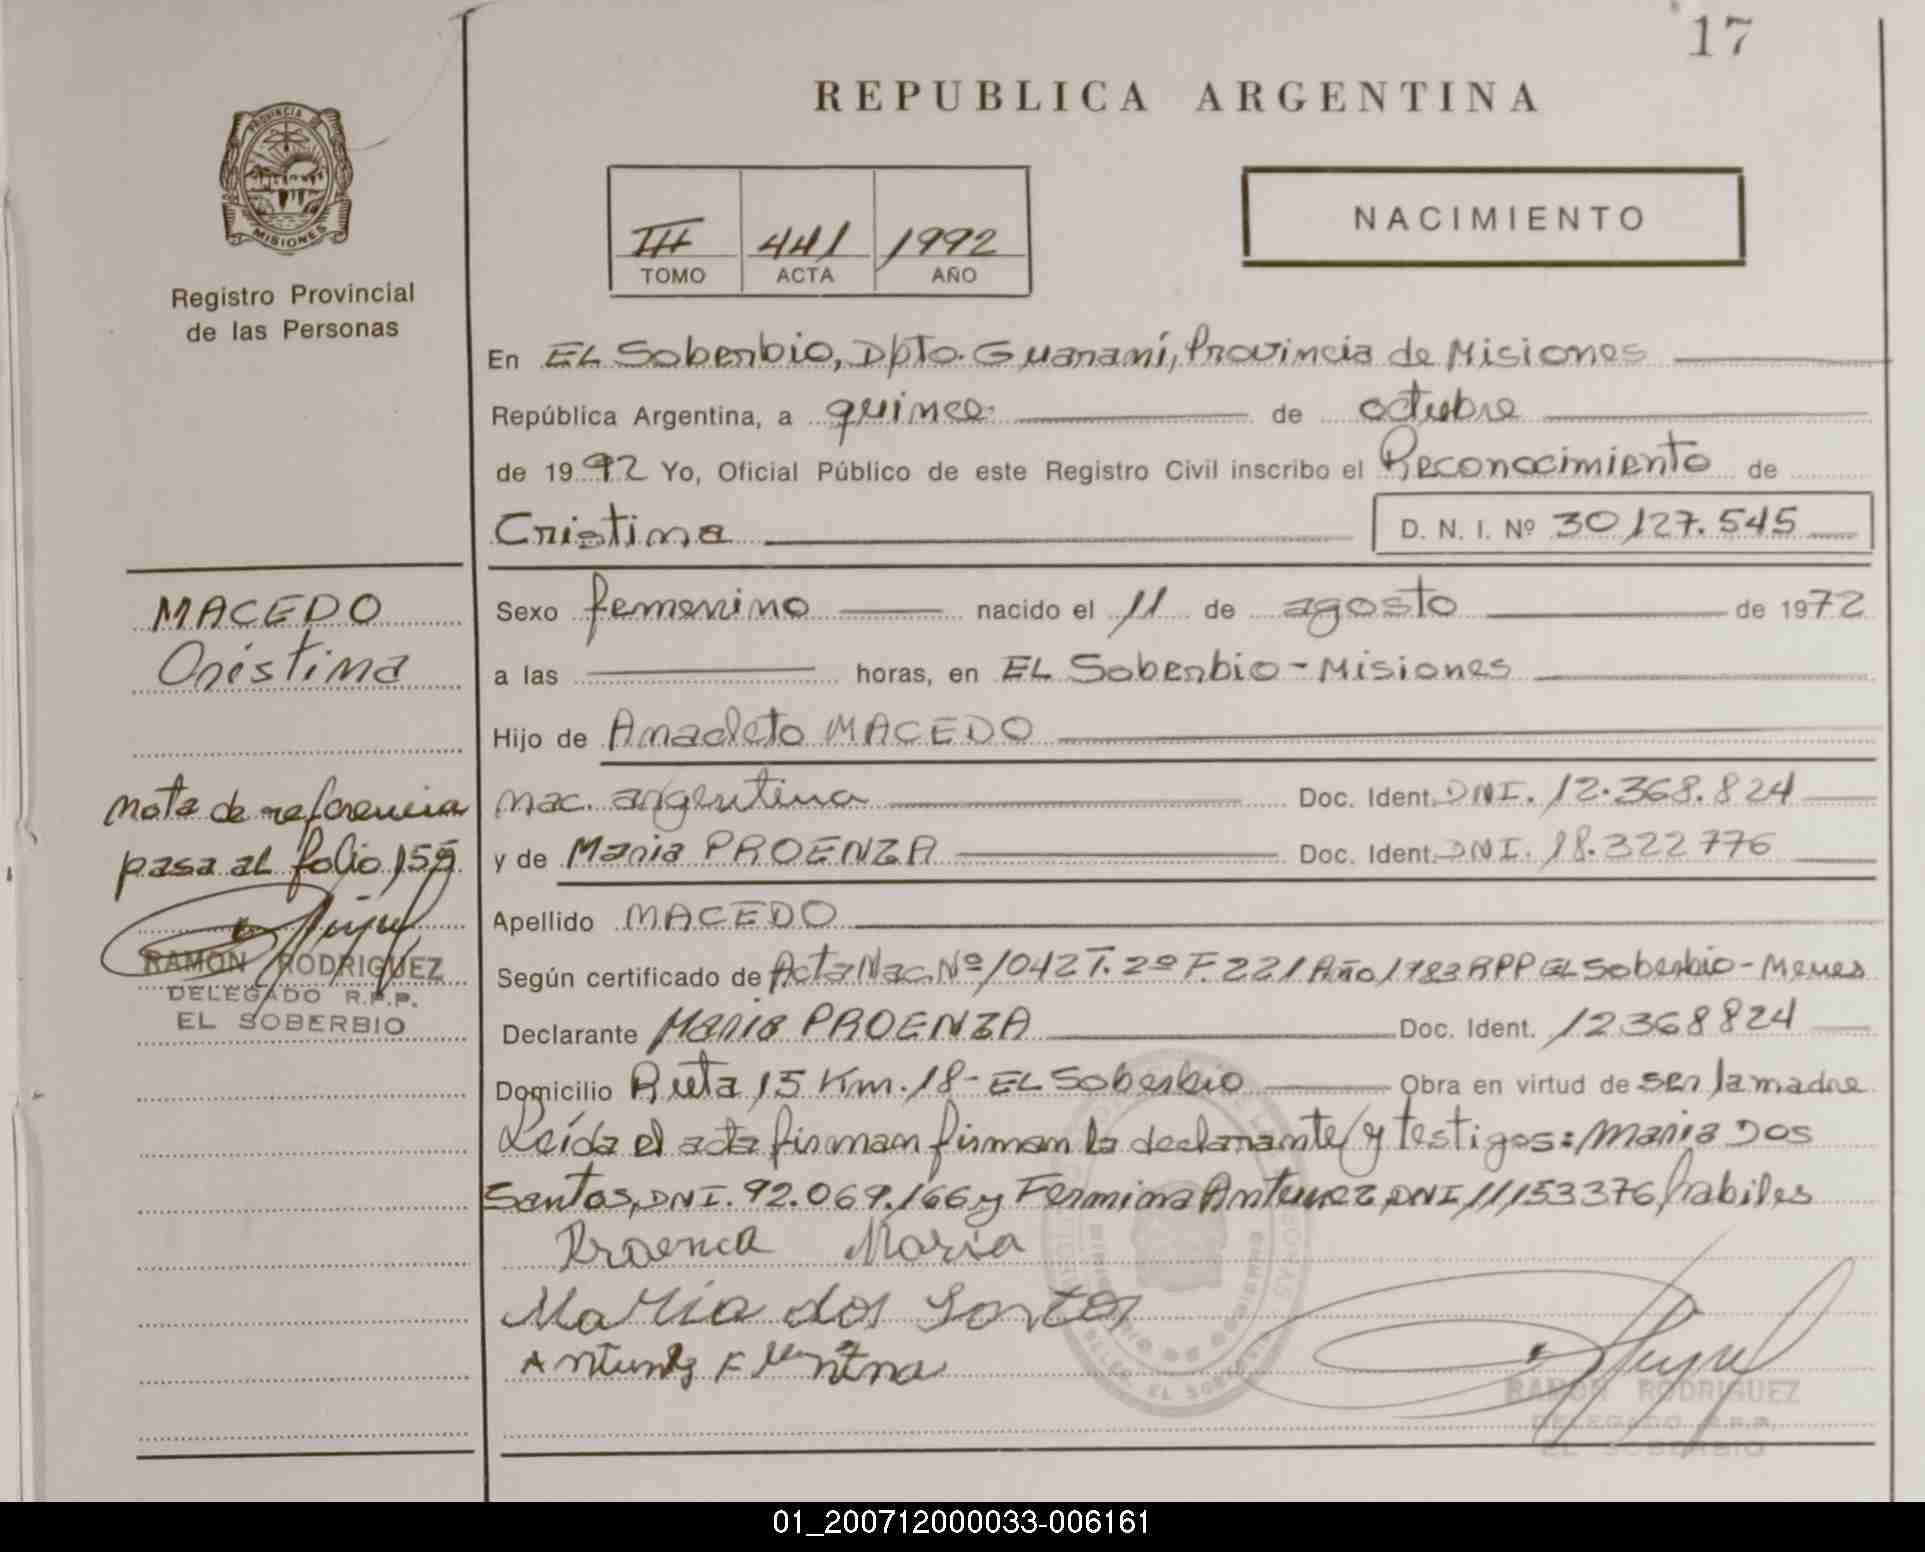 17
REPUBLICA ARGENTINA
PROVINCIA DE
MISIONES
Registro Provincial
de las Personas
III 441 1992
TOMO ACTA AÑO
NACIMIENTO
En EL Soberbio, Dpto. Guaraní, Provincia de Misiones
República Argentina, a quince de octubre
de 1992 Yo, Oficial Público de este Registro Civil inscribo el Reconocimiento de
Cristina D. N. I. Nº 30127.545
MACEDO
Cristina
nota de referencia
pasa al folio 155
RAMON RODRIGUEZ
DELEGADO R.P.P.
EL SOBERBIO
Sexo femenino nacido el 11 de agosto de 1972
a las horas, en EL Soberbio - Misiones
Hijo de Anacleto MACEDO
nac. argentina Doc. Ident. DNI. 12.368.824
y de Maria PROENZA Doc. Ident. DNI. 18.322776
Apellido MACEDO
Según certificado de Acta Nac. Nº 1042 T. 2º F. 221 Año 1983 RPP EL Soberbio - Mnes
Declarante Maria PROENZA Doc. Ident. 12368824
Domicilio Ruta 15 Km. 18 - EL Soberbio Obra en virtud de ser la madre
Leída el acta firman firman la declarante y testigos: Maria Dos
Santos, DNI. 92.069.166 y Fermina Antunez DNI 11153376 habiles
Proenca Maria
Maria dos Santos
RAMON RODRIGUEZ
DELEGADO R.P.P.
EL SOBERBIO
01_200712000033-006161